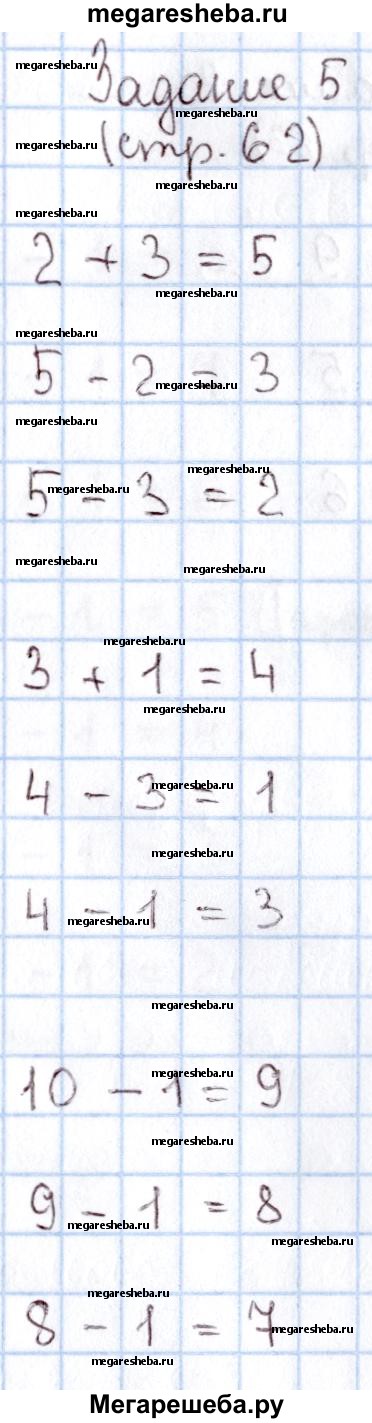 megaresheba.ru
megaresheba.ru
Задание 5
megaresheba.ru
megaresheba.ru
(стр. 62)
megaresheba.ru
megaresheba.ru
2 + 3 = 5
megaresheba.ru
megaresheba.ru
5 - 2 = 3
megaresheba.ru
megaresheba.ru
megaresheba.ru
5 - 3 = 2
megaresheba.ru
megaresheba.ru
megaresheba.ru
megaresheba.ru
3 + 1 = 4
megaresheba.ru
4 - 3 = 1
megaresheba.ru
megaresheba.ru
4 - 1 = 3
megaresheba.ru
megaresheba.ru
megaresheba.ru
10 - 1 = 9
megaresheba.ru
megaresheba.ru
9 - 1 = 8
megaresheba.ru
megaresheba.ru
megaresheba.ru
8 - 1 = 7
megaresheba.ru
megaresheba.ru
Мегарешеба.ру